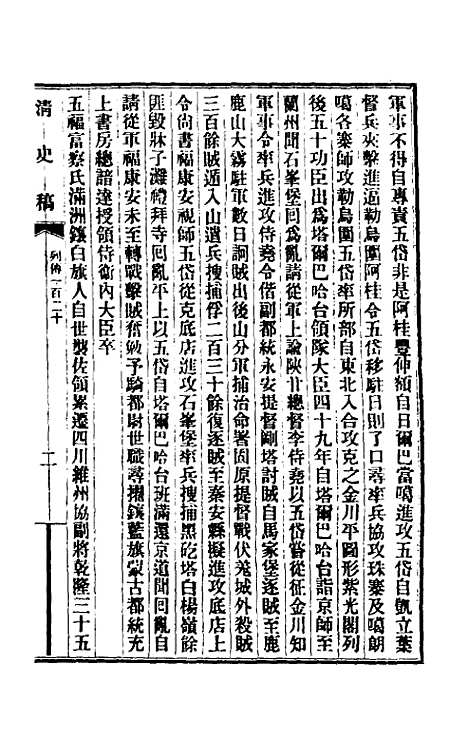 軍事不得自專責五岱非是阿桂豐伸額自日爾巴當噶進攻五岱自凱立葉
督兵夾擊進逼勒烏圍阿桂令五岱移駐日則丫口尋率兵協攻珠寨及噶朗
噶各寨師攻勒烏圍五岱率所部自東北入合攻克之金川平圖形紫光閣列
後五十功臣出爲塔爾巴哈台領隊大臣四十九年自塔爾巴哈台詣京師至
蘭州聞石峯堡回爲亂請從軍上諭陝甘總督李侍堯以五岱嘗從征金川知
軍事令率兵進攻侍堯令偕副都統永安提督剛塔討賊自馬家堡逐賊至鹿
鹿山大霧駐軍數日詗賊出後山分軍捕治命署固原提督戰伏羌城外殺賊
三百餘賊遁入山遣兵搜捕俘二百三十餘復逐賊至秦安縣擬進攻底店上
令尚書福康安視師五岱從克底店進攻石峯堡率兵搜捕黑矻塔白楊嶺餘
匪毀牀子灘禮拜寺回亂平上以五岱自塔爾巴哈台班滿還京道聞回亂自
請從軍福康安未至轉戰擊賊奮勉予騎都尉世職尋擢鑲藍旗蒙古都統充
上書房總諳達授領侍衛內大臣卒
五福富察氏滿洲鑲白旗人自世襲佐領累遷四川維州協副將乾隆三十五
清史稿
列傳一百二十
二